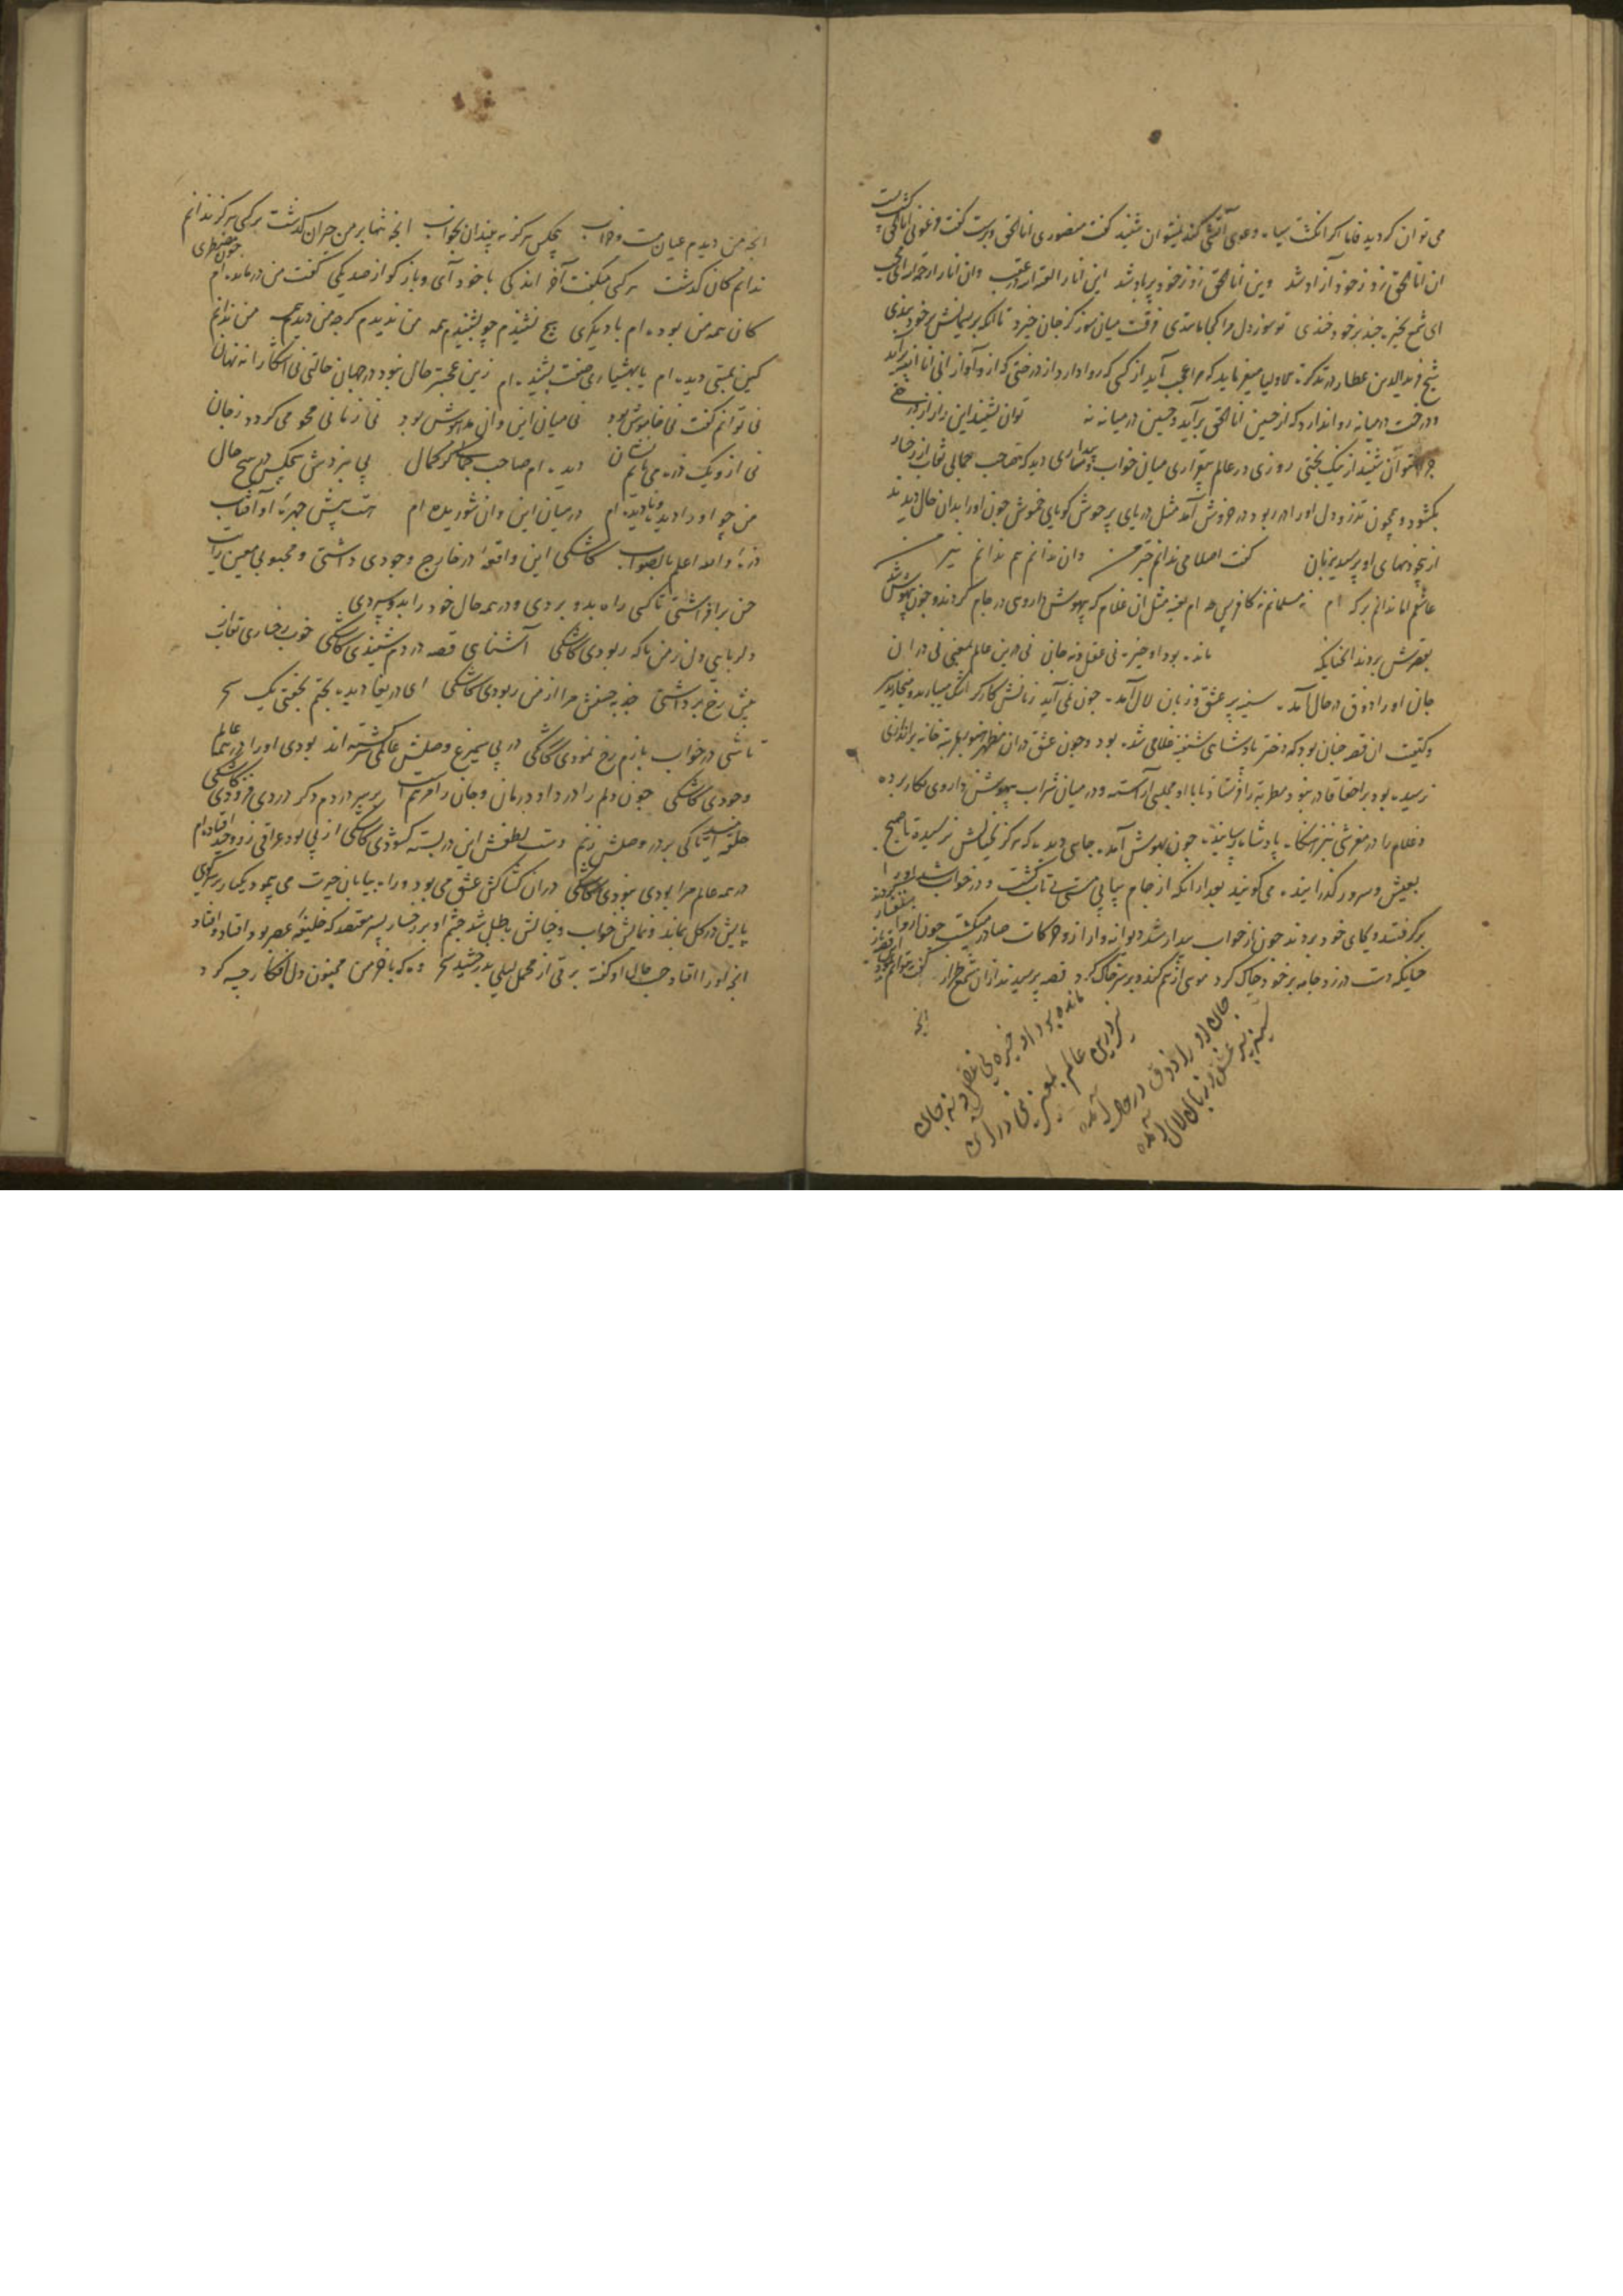 می توان کردید فاما اکر انکشت سیاه دعوی آتشی کند نیتوان شنید کفت منصوری انا الحق و برست کفت فرعونی انا الحق کشت پست
ان انا الحق زو زخود آزاد شد وین انا الحق زو زخود برباد شد این انا را لعنة الله در عقب وان انا را رحمة الله ای محب
ای شمع بخیره چند برخود خندی تو سوز دل مرا کجا مانندی فرقست میان سوز کز جان خیزد تا انکه بریسمانش برخود بندی
شیخ فرید الدین عطار در تذکره الاولیا میفرماید که مرا عجب آید از کسی که روا دارد از درختی که ازو آواز انی انا الله برآید
و درخت در میانه روا ندارد که از حسین انا الحق برآید و حسین در میانه نه توان شنید این راز از درختی
چرا نتوان شنید از نیک بختی روزی در عالم بیقراری میان خواب و بیداری دید که صاحب جمالی نقاب از رخسار
بکشود و بیچون تذرو دل او را در ربود در خروش آمد مثل دریای پر جوش کویایی خموش چون او را بدان حال دیدند
از بیخودیهای او پرسیدند بزبان کفت اصلا می ندانم خبر من وان ندانم هم ندانم نیز من
عاشقم اما ندانم بر که ام نه مسلمانم نه کافر پس چه ام مثل ان غلام که بیهوش داروی در جام کردند و چون بیهوش شد
بقصرش بردند انچنانکه مانده بود او خیره نی عقل و نه جان نی درین عالم بمعنی نی در ان
جان او را ذوق در حال آمده سینه پر عشق و زبان لال آمده چون نمی آید زبانش کارکر اشک میبارید و میخارید سر
و کیفیت ان قصه چنان بود که دختر پادشاهی شیفته غلامی شده بود و چون عشق دران
رسیده بود بر اخفا قادر نبود مطربه را فرستاد تا با او مجلسی آراسته و در میان شراب بیهوش داروی بکار برده
و غلام را در مفرشی پادشاه رسانیده چون بهوش آمد جایی دید که هرکز بخیالش نرسیده تا صبح
بعیش و سرور کذرانیده می کویند بعد از انکه از جام پیاپی مست بی تاب کشت و در خواب شد او را
برکرفتند و بجای خود بردند چون از خواب بیدار شد دیوانه وار ازو حرکات صادر میکشت چون ازو استفسار کردند
چنانکه دست در زد جامه بر خود چاک کرد موی از هم کند و بر سر خاک کرد قصه پرسیدند ازان شمع طراز کفت نتوانم نمود این قصه باز
انچه
مانده بود او خیره نی عقل و نه جان
نی درین عالم بمعنی نی در ان
جان او را ذوق در حال آمده
سینه پر عشق و زبان لال آمده
انچه من دیدم عیان مست و خراب هیچکس هرکز نه بیند ان بخواب انچه تنها بر من حیران کذشت بر کسی هرکز ندانم
ندانم کان کذشت هر کسی میکفت آخر اندکی با خود آی و باز کو از صد یکی کفت من درمانده ام چون مضطری
کان همه من بوده ام یا دیکری هیچ نشنیدم چو بشنیدم همه من ندیدم کرچه من دیدم همه من ندانم
کین بمستی دیده ام یا بهشیاری صفت بشنیده ام زین عجبتر حال نبود در جهان حالتی نی اشکارا نه نهان
نی توانم کفت نی خاموش بود نی میان این وان مدهوش بود نی زمانی محو می کردد زجان
نی ازو یک ذره می یابم نشان دیده ام صاحب جمالی کز کمال پی نبردش هیچکس در هیچ حال
من چو او را دیده و نادیده ام در میان این وان شوریده ام هست پیش چهره او آفتاب
ذره والله اعلم بالصواب کاشکی این واقعه در خارج وجودی داشتی و محبوبی معین رایت
حسن برافراشتی تا کسی راه بدو بردی و در همه حال خود را بدو سپردی
دلربایی دل زمن ناکه ربودی کاشکی آشنای قصه دردم شنیدی کاشکی خوب رخساری نقاب
پیش رخ برداشتی جذبه حسنش مرا از من ربودی کاشکی ای دریغا دیده بختم بخفتی یک سحر
تا شبی در خواب بازم رخ نمودی کاشکی در پی سیمرغ وصلش عالمی سرکشته اند بودی او را در همه عالم
وجودی کاشکی چون دلم را درد او درمان و جان را مرهمست بر سر دردم دکر دردی فزودی کاشکی
حلقه امید تا کی بر در وصلش زنم دست لطفش این در بسته کشودی کاشکی از پی بود عراقی زو جدا افتاده ام
در همه عالم مرا بودی نبودی کاشکی دران کشاکش عشق می بود و راه بیابان حیرت می پیمود یکبار
پایش در کل بماند و نمایش خواب و خیالش باطل شد چشم او بر رخسار پسر معتضد که خلیفه عصر بود افتاد و افتاد
انچه او را افتاد کفته برقی از محمل لیلی بدرخشید سحر وه که با خرمن مجنون دل افکار چه کرد